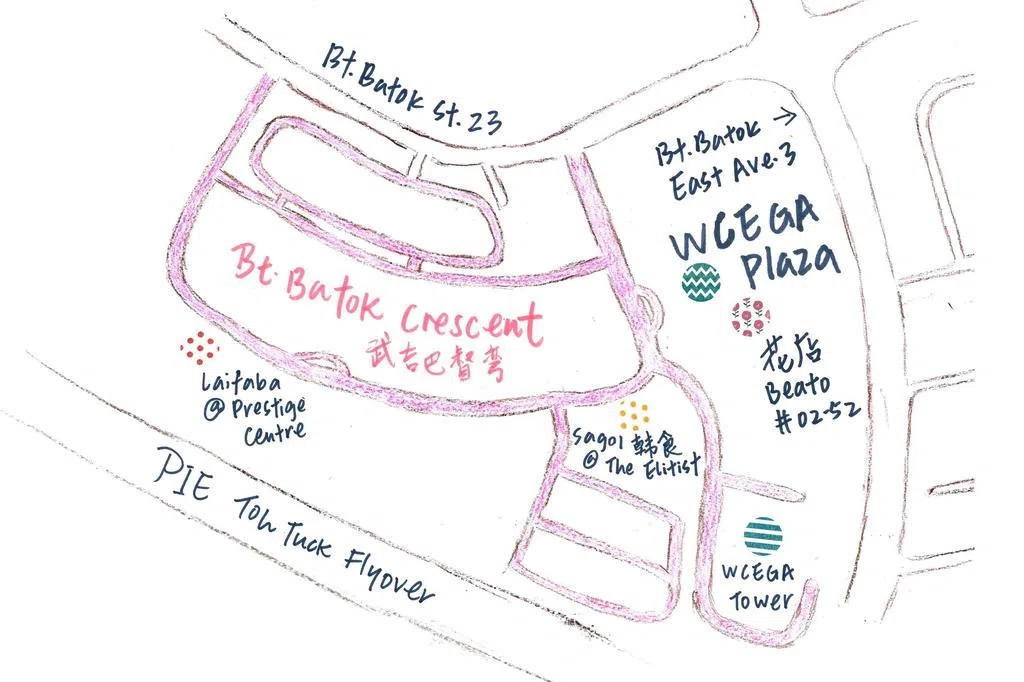 Bt. Batok St. 23
Bt. Batok →
East Ave. 3
WCEGA
Plaza
花店
Beato
#02-52
Bt. Batok Crescent
武吉巴督弯
Laifaba
@ Prestige
Centre
Sagol 韩食
@ The Elitist
WCEGA
Tower
PIE Toh Tuck Flyover